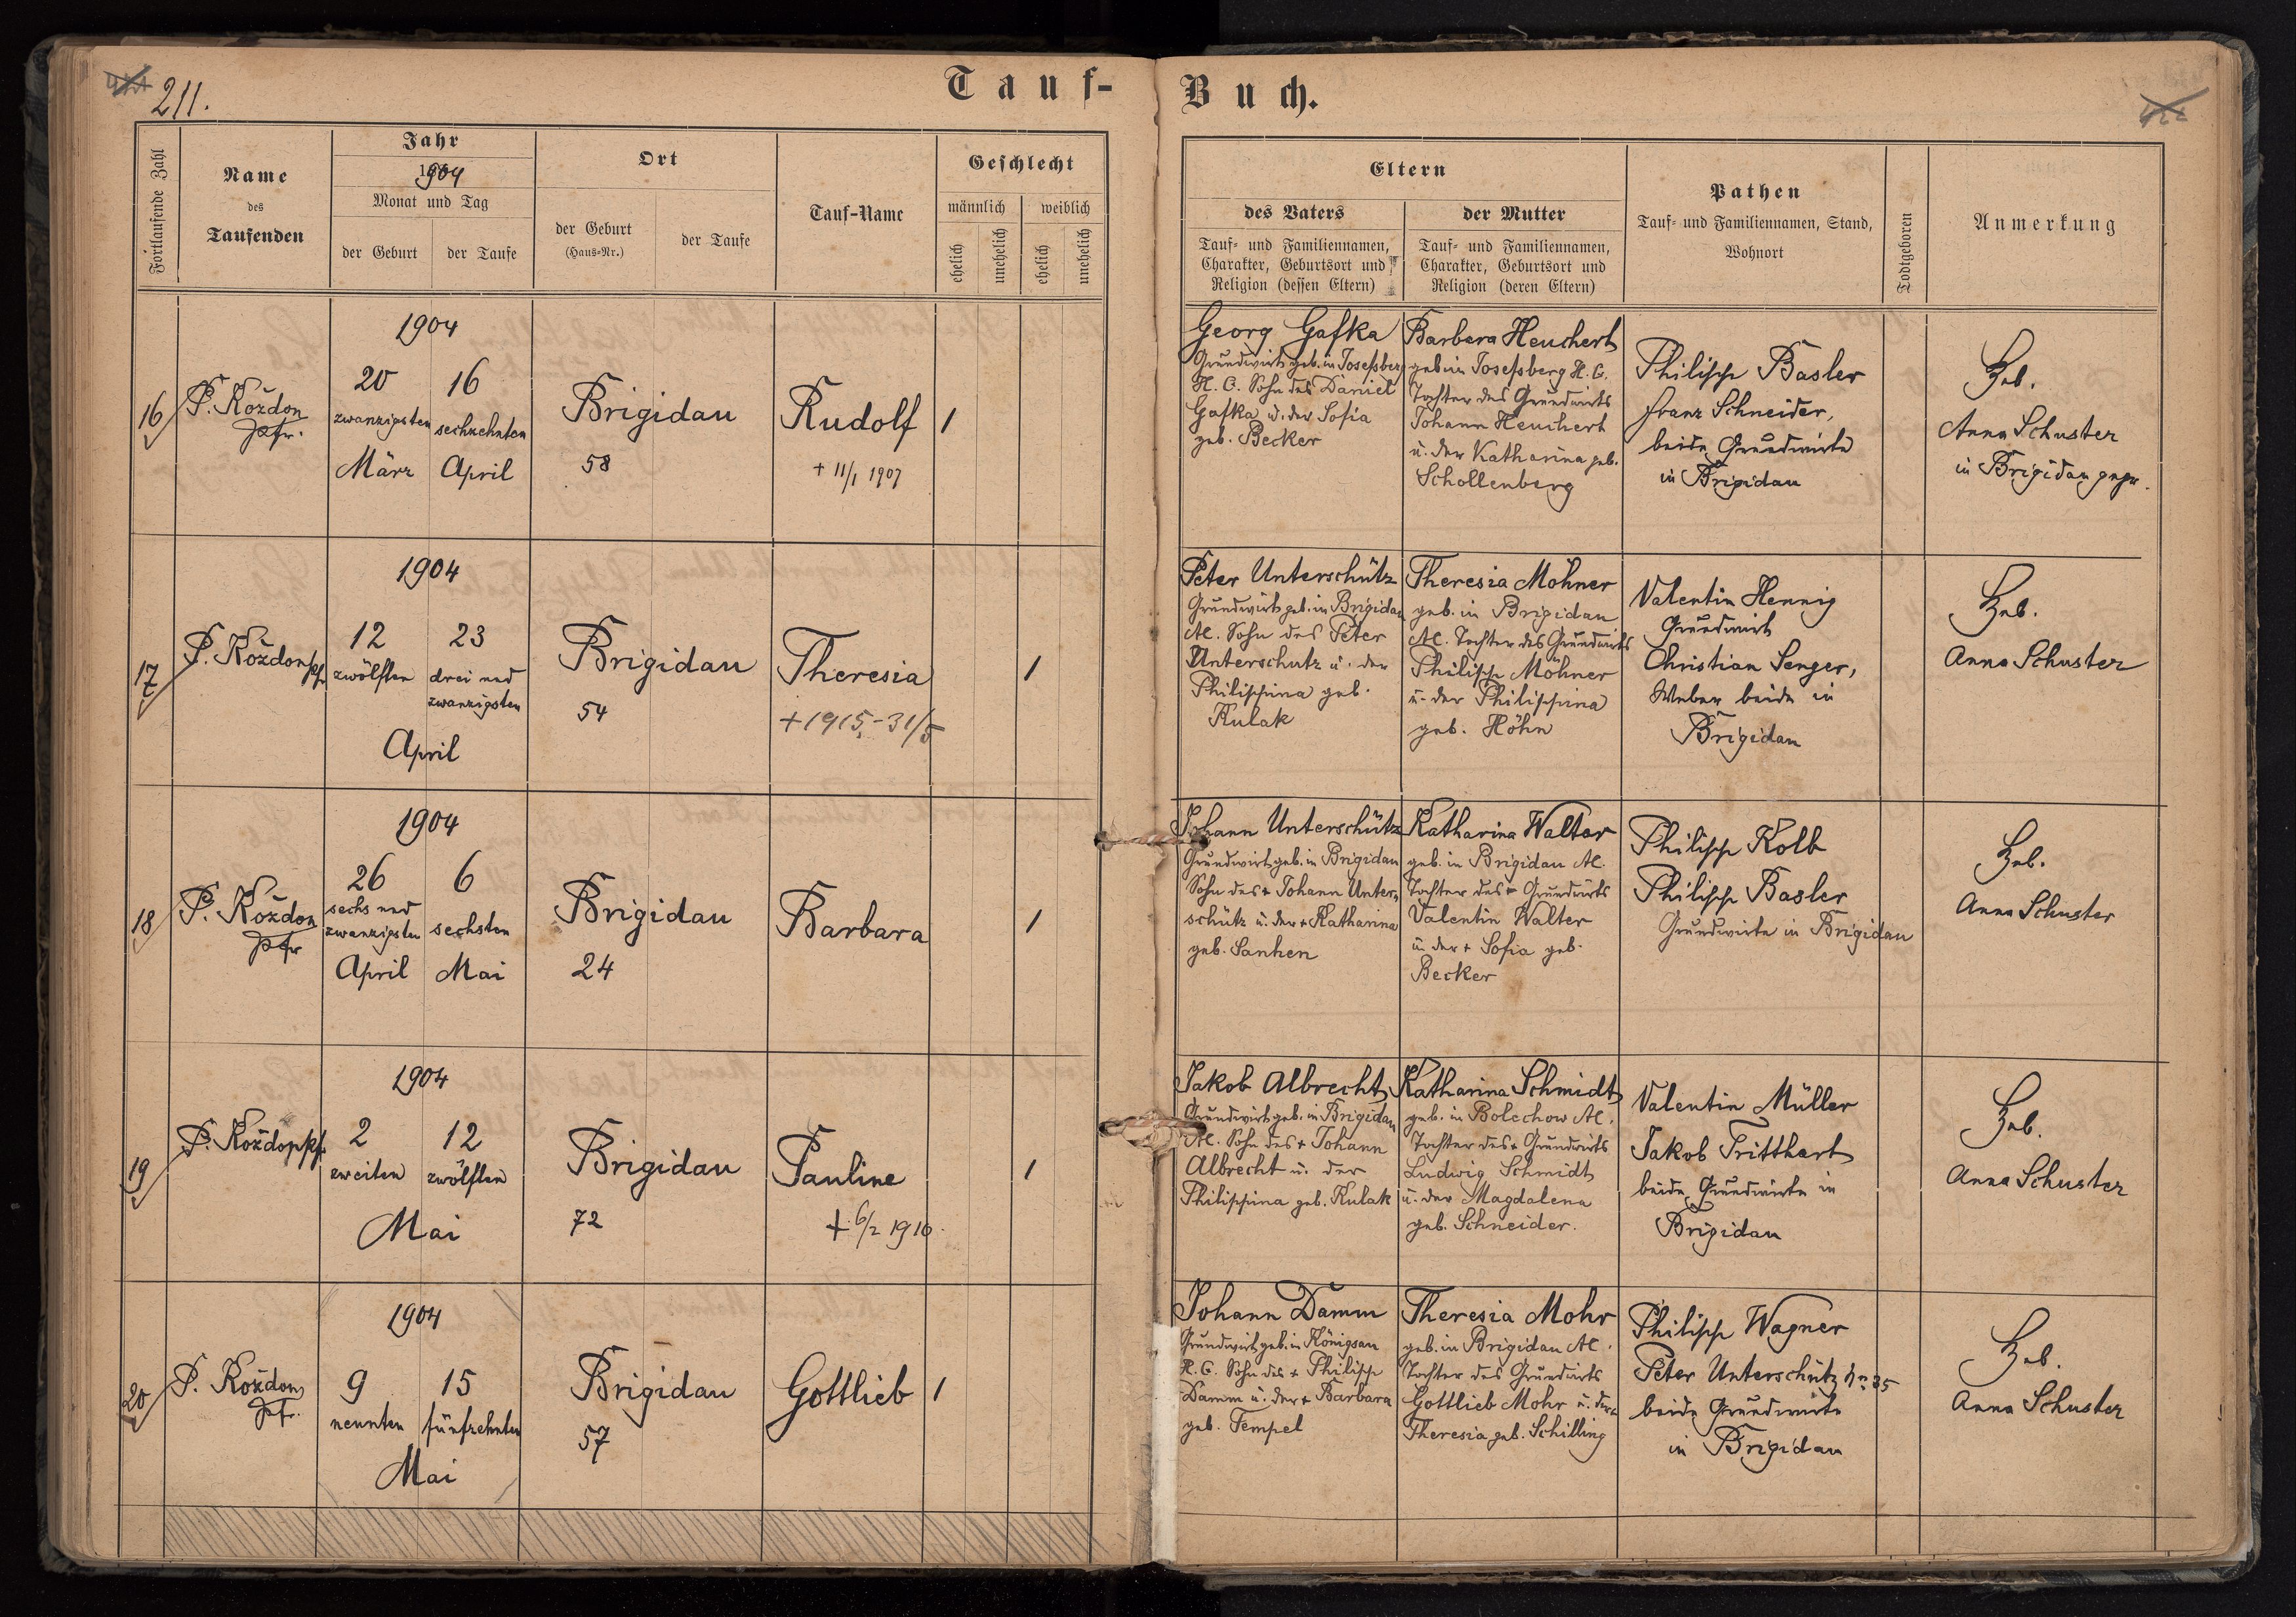 211.
Tauf-
Buch.
Fortlaufende Zahl
Name
des
Taufenden
Jahr
1904
Monat und Tag
der Geburt
der Taufe
Ort
der Geburt
(Haus-Nr.)
der Taufe
Tauf-Name
Geschlecht
männlich
weiblich
ehelich
unehelich
ehelich
unehelich
Eltern
des Vaters
Tauf- und Familiennamen,
Charakter, Geburtsort und
Religion (dessen Eltern)
der Mutter
Tauf- und Familiennamen,
Charakter, Geburtsort und
Religion (deren Eltern)
Pathen
Tauf- und Familiennamen, Stand,
Wohnort
Todtgeboren
Anmerkung
16
P. Kożdon
Pfr.
1904
20
zwanzigsten
März
16
sechzehnten
April
Brigidau
58
Rudolf
+ 11/1 1907
1
Georg Gafka
Grundwirt geb. in Josefsberg
H. C. Sohn des Daniel
Gafka u. der Sofia
geb. Becker
Barbara Heuchert
geb in Josefsberg H. C.
Tochter des Grundwirts
Johann Heuchert
u. der Katharina geb.
Schollenberg
Philipp Basler
Franz Schneider,
beide Grundwirte
in Brigidau
Heb.
Anna Schuster
in Brigidau gepr.
17
P. Kożdon Pf
1904
12
zwölften
23
drei und
zwanzigsten
April
Brigidau
54
Theresia
+ 1915 - 31/5
1
Peter Unterschütz
Grundwirt geb. in Brigidau
AC. Sohn des Peter
Unterschutz u. der
Philippina geb.
Kulak
Theresia Möhner
geb. in Brigidau
AC. Tochter des Grundwirts
Philipp Möhner
u. der Philippina
geb. Höhn
Valentin Hennig
Grundwirt
Christian Senger,
Weber beide in
Brigidau
Heb.
Anna Schuster
18
P. Kożdon
Pfr
1904
26
sechs und
zwanzigsten
April
6
sechsten
Mai
Brigidau
24
Barbara
1
Johann Unterschütz
Grundwirt geb. in Brigidau
Sohn des + Johann Unter-
schütz u. der + Katharina
geb. Sanhen
Katharina Walter
geb. in Brigidau AC.
Tochter des + Grundwirts
Valentin Walter
u. der + Sofia geb.
Becker
Philipp Kolb
Philipp Basler
Grundwirte in Brigidau
Heb.
Anna Schuster
19
P. Kożdon Pf
1904
2
zweiten
12
zwölften
Mai
Brigidau
72
Pauline
+ 6/2 1910
1
Jakob Albrecht
Grundwirt geb. in Brigidau
AC. Sohn des + Johann
Albrecht u. der
Philippina geb. Kulak
Katharina Schmidt
geb. in Bolechow AC.
Tochter des + Grundwirts
Ludwig Schmidt
u. der Magdalena
geb. Schneider.
Valentin Müller
Jakob Tritthart
beide Grundwirte in
Brigidau
Heb.
Anna Schuster
20
P. Kożdon
Pfr.
1904
9
neunten
15
fünfzehnten
Mai
Brigidau
57
Gottlieb
1
Johann Damm
Grundwirt geb. in Königsau
H. C. Sohn des + Philipp
Damm u. der + Barbara
geb. Tempel
Theresia Mohr
geb. in Brigidau AC.
Tochter des Grundwirts
Gottlieb Mohr u. der +
Theresia geb. Schilling
Philipp Wagner
Peter Unterschütz Nr. 35
beide Grundwirte
in Brigidau
Heb.
Anna Schuster